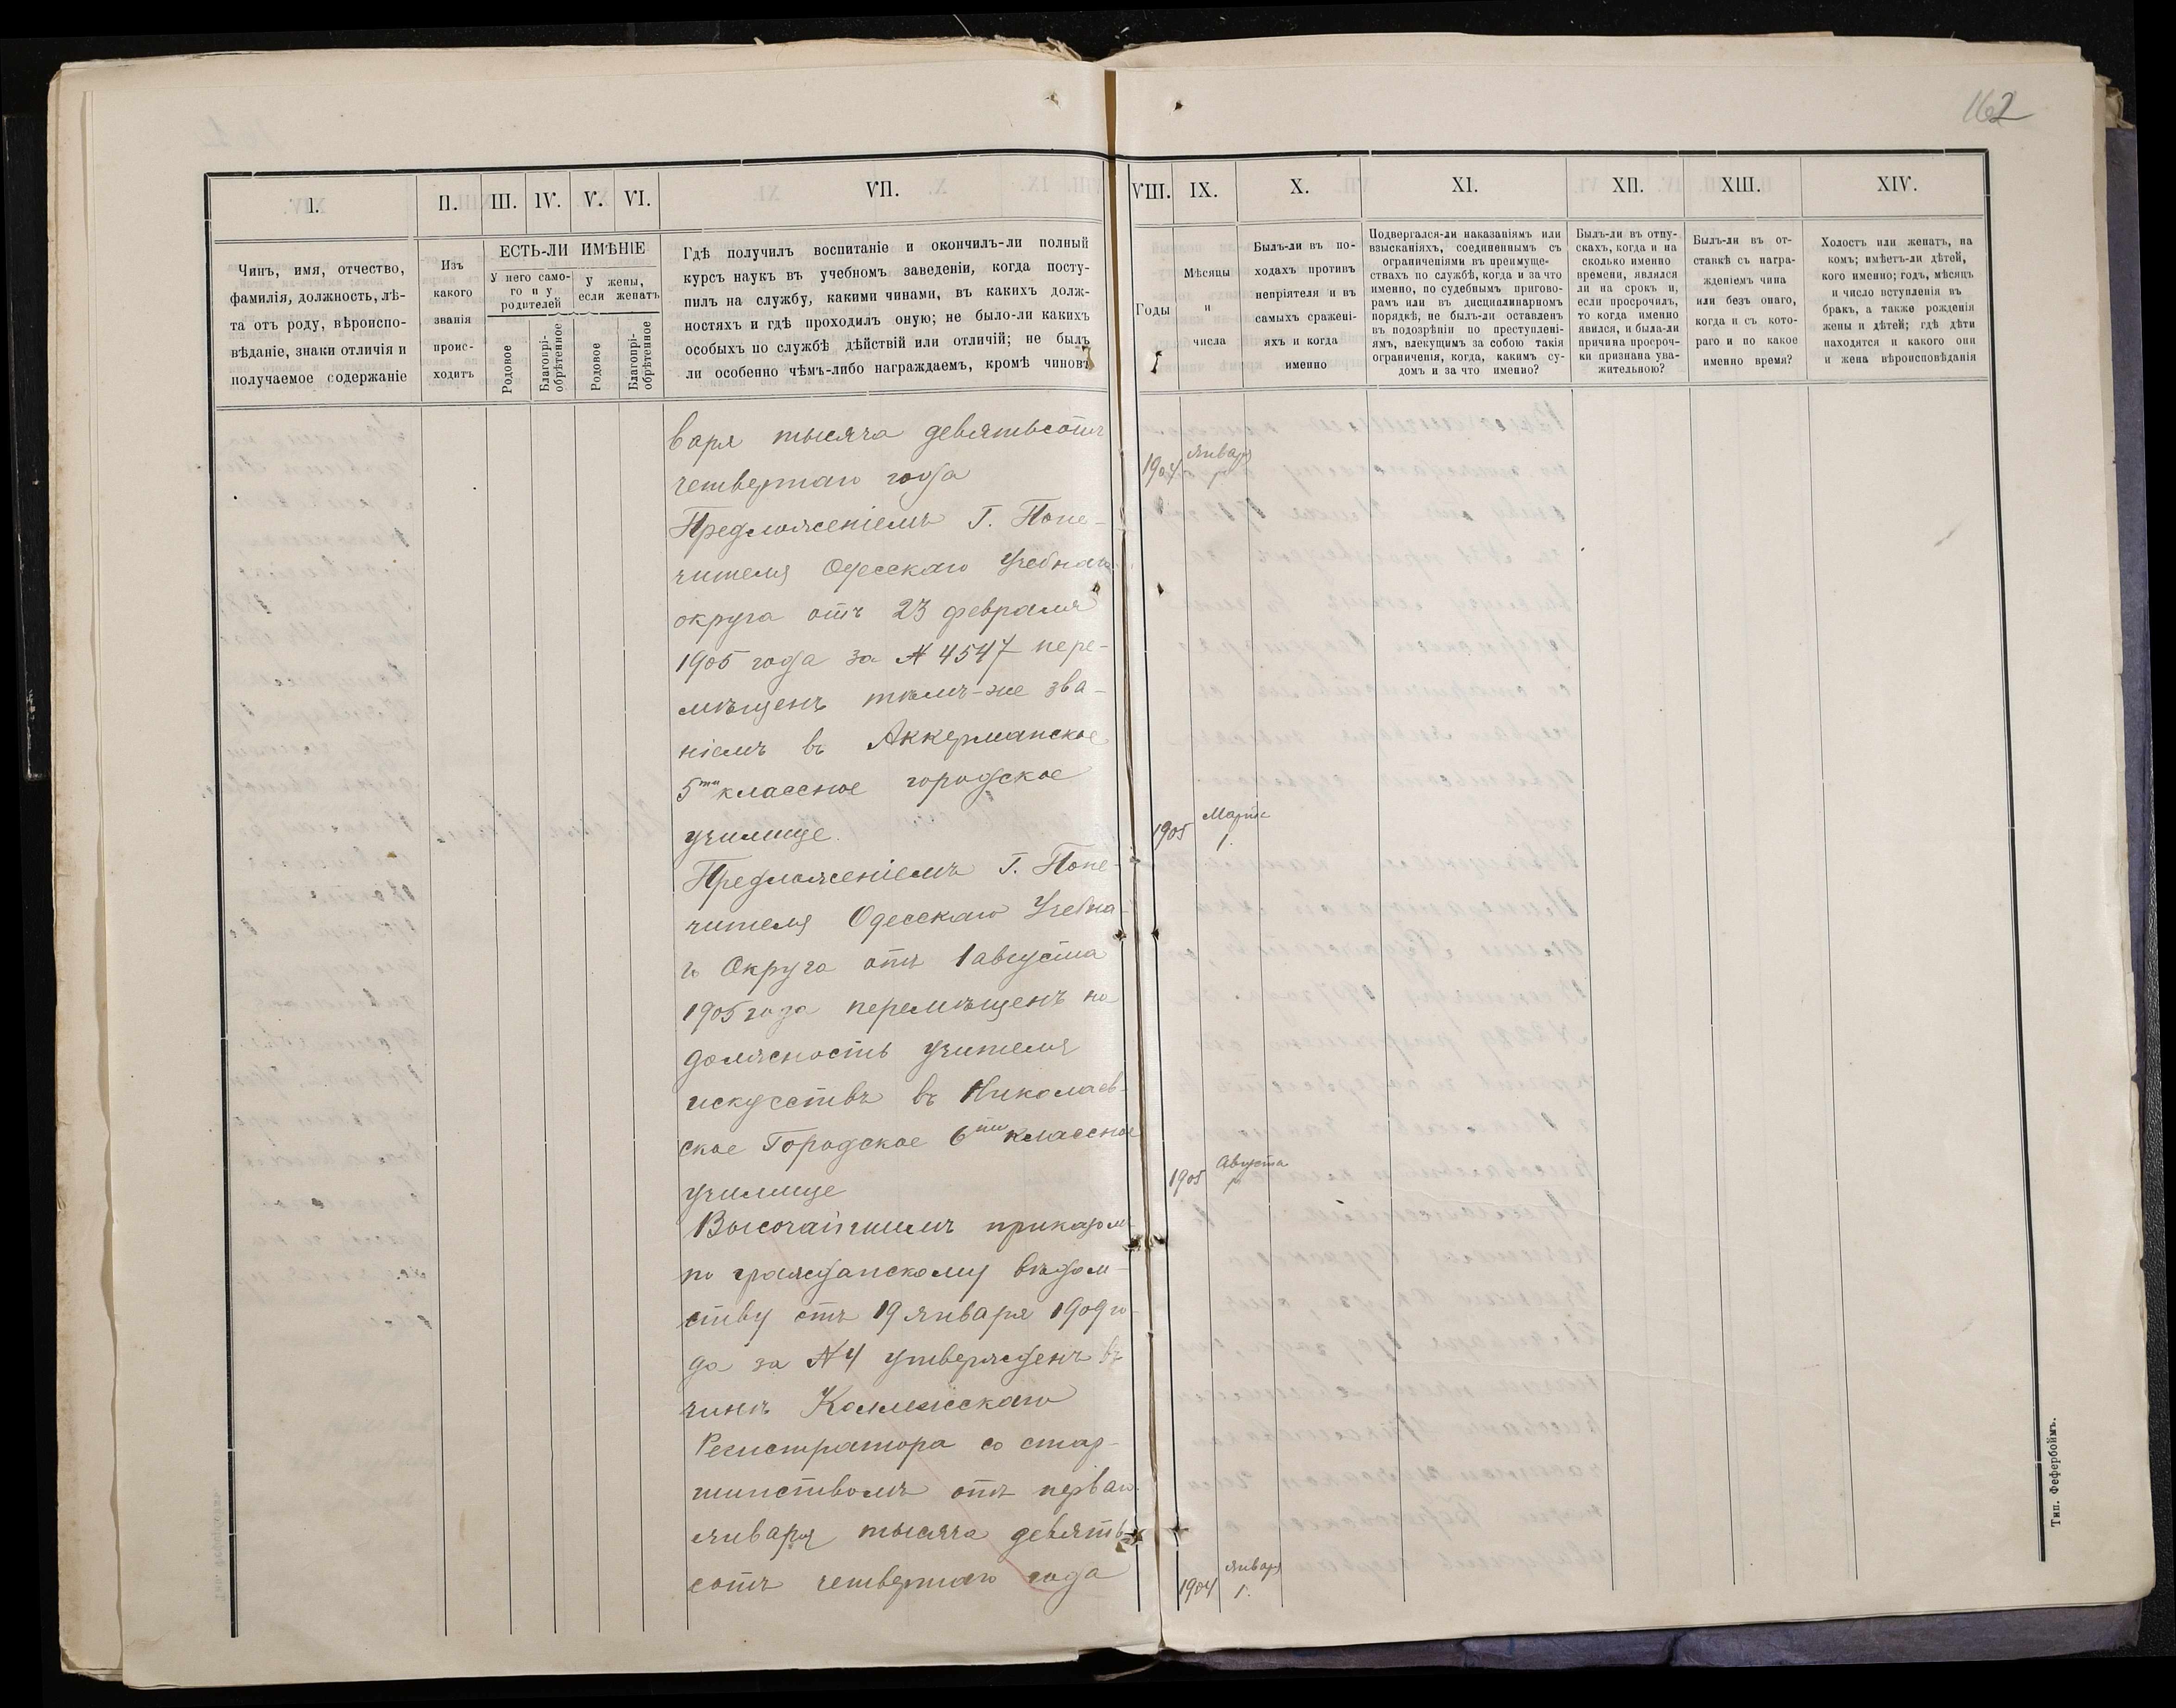 162
I.
II.
III.
IV.
V.
VI.
VII.
VIII.
IX.
X.
XI.
XII.
XIII.
XIV.
Чинъ, имя, отчество,
фамилія, должность, лѣ-
та отъ роду, вѣроиспо-
вѣданіе, знаки отличія и
получаемое содержаніе
Изъ
какого
званія
проис-
ходитъ
ЕСТЬ-ЛИ ИМѢНІЕ
У него само-
го и у
родителей
У жены,
если женатъ
Родовое
Благопрі-
обрѣтенное
Родовое
Благопрі-
обрѣтенное
Гдѣ получилъ воспитаніе и окончилъ-ли полный
курсъ наукъ въ учебномъ заведеніи, когда посту-
пилъ на службу, какими чинами, въ какихъ долж-
ностяхъ и гдѣ проходилъ оную; не было-ли какихъ
особыхъ по службѣ дѣйствій или отличій; не былъ
ли особенно чѣмъ-либо награждаемъ, кромѣ чиновъ
Годы
Мѣсяцы
и
числа
Былъ-ли въ по-
ходахъ противъ
непріятеля и въ
самыхъ сражені-
яхъ и когда
именно
Подвергался-ли наказаніямъ или
взысканіяхъ, соединеннымъ съ
ограниченіями въ преимуще-
ствахъ по службѣ, когда и за что
именно, по судебнымъ пригово-
рамъ или въ дисциплинарномъ
порядкѣ, не былъ-ли оставленъ
въ подозрѣніи по преступлені-
ямъ, влекущимъ за собою такія
ограниченія, когда, какимъ су-
домъ и за что именно?
Былъ-ли въ отпу-
скахъ, когда и на
сколько именно
времени, являлся
ли на срокъ и,
если просрочилъ,
то когда именно
явился, и была-ли
причина просроч-
ки признана ува-
жительною?
Былъ-ли въ от-
ставкѣ съ награ-
жденіемъ чина
или безъ онаго,
когда и съ кото-
раго и по какое
именно время?
Холостъ или женатъ, на
комъ; имѣетъ-ли дѣтей,
кого именно; годъ, мѣсяцъ
и число вступленія въ
бракъ, а также рожденія
жены и дѣтей; гдѣ дѣти
находятся и какого они
и жена вѣроисповѣданія
варя тысяча девятьсотъ
четвертаго года
1904 Января
Предложеніемъ Г. Попе-
чителя Одесскаго Учебнаго
округа отъ 23 февраля
1905 года за № 4547 пере-
мѣщенъ тѣмъ-же зва-
ніемъ въ Аккерманское
5ти классное городское
училище.
1905 Марта 1.
Предложеніемъ Г. Попе-
чителя Одесскаго Учебна-
го Округа отъ 1 августа
1905 года перемѣщенъ на
должность учителя
искусствъ въ Николаев-
ское Городское 6ти классное
училище
1905 Августа
Высочайшимъ приказомъ
по гражданскому вѣдом-
ству отъ 19 Января 1909 го-
да за № 4 утвержденъ въ
чинѣ Коллежскаго
Регистратора со стар-
шинствомъ отъ перваго
января тысяча девять-
сотъ четвертаго года
1904 Января 1.
Тип. Фефербоймъ.